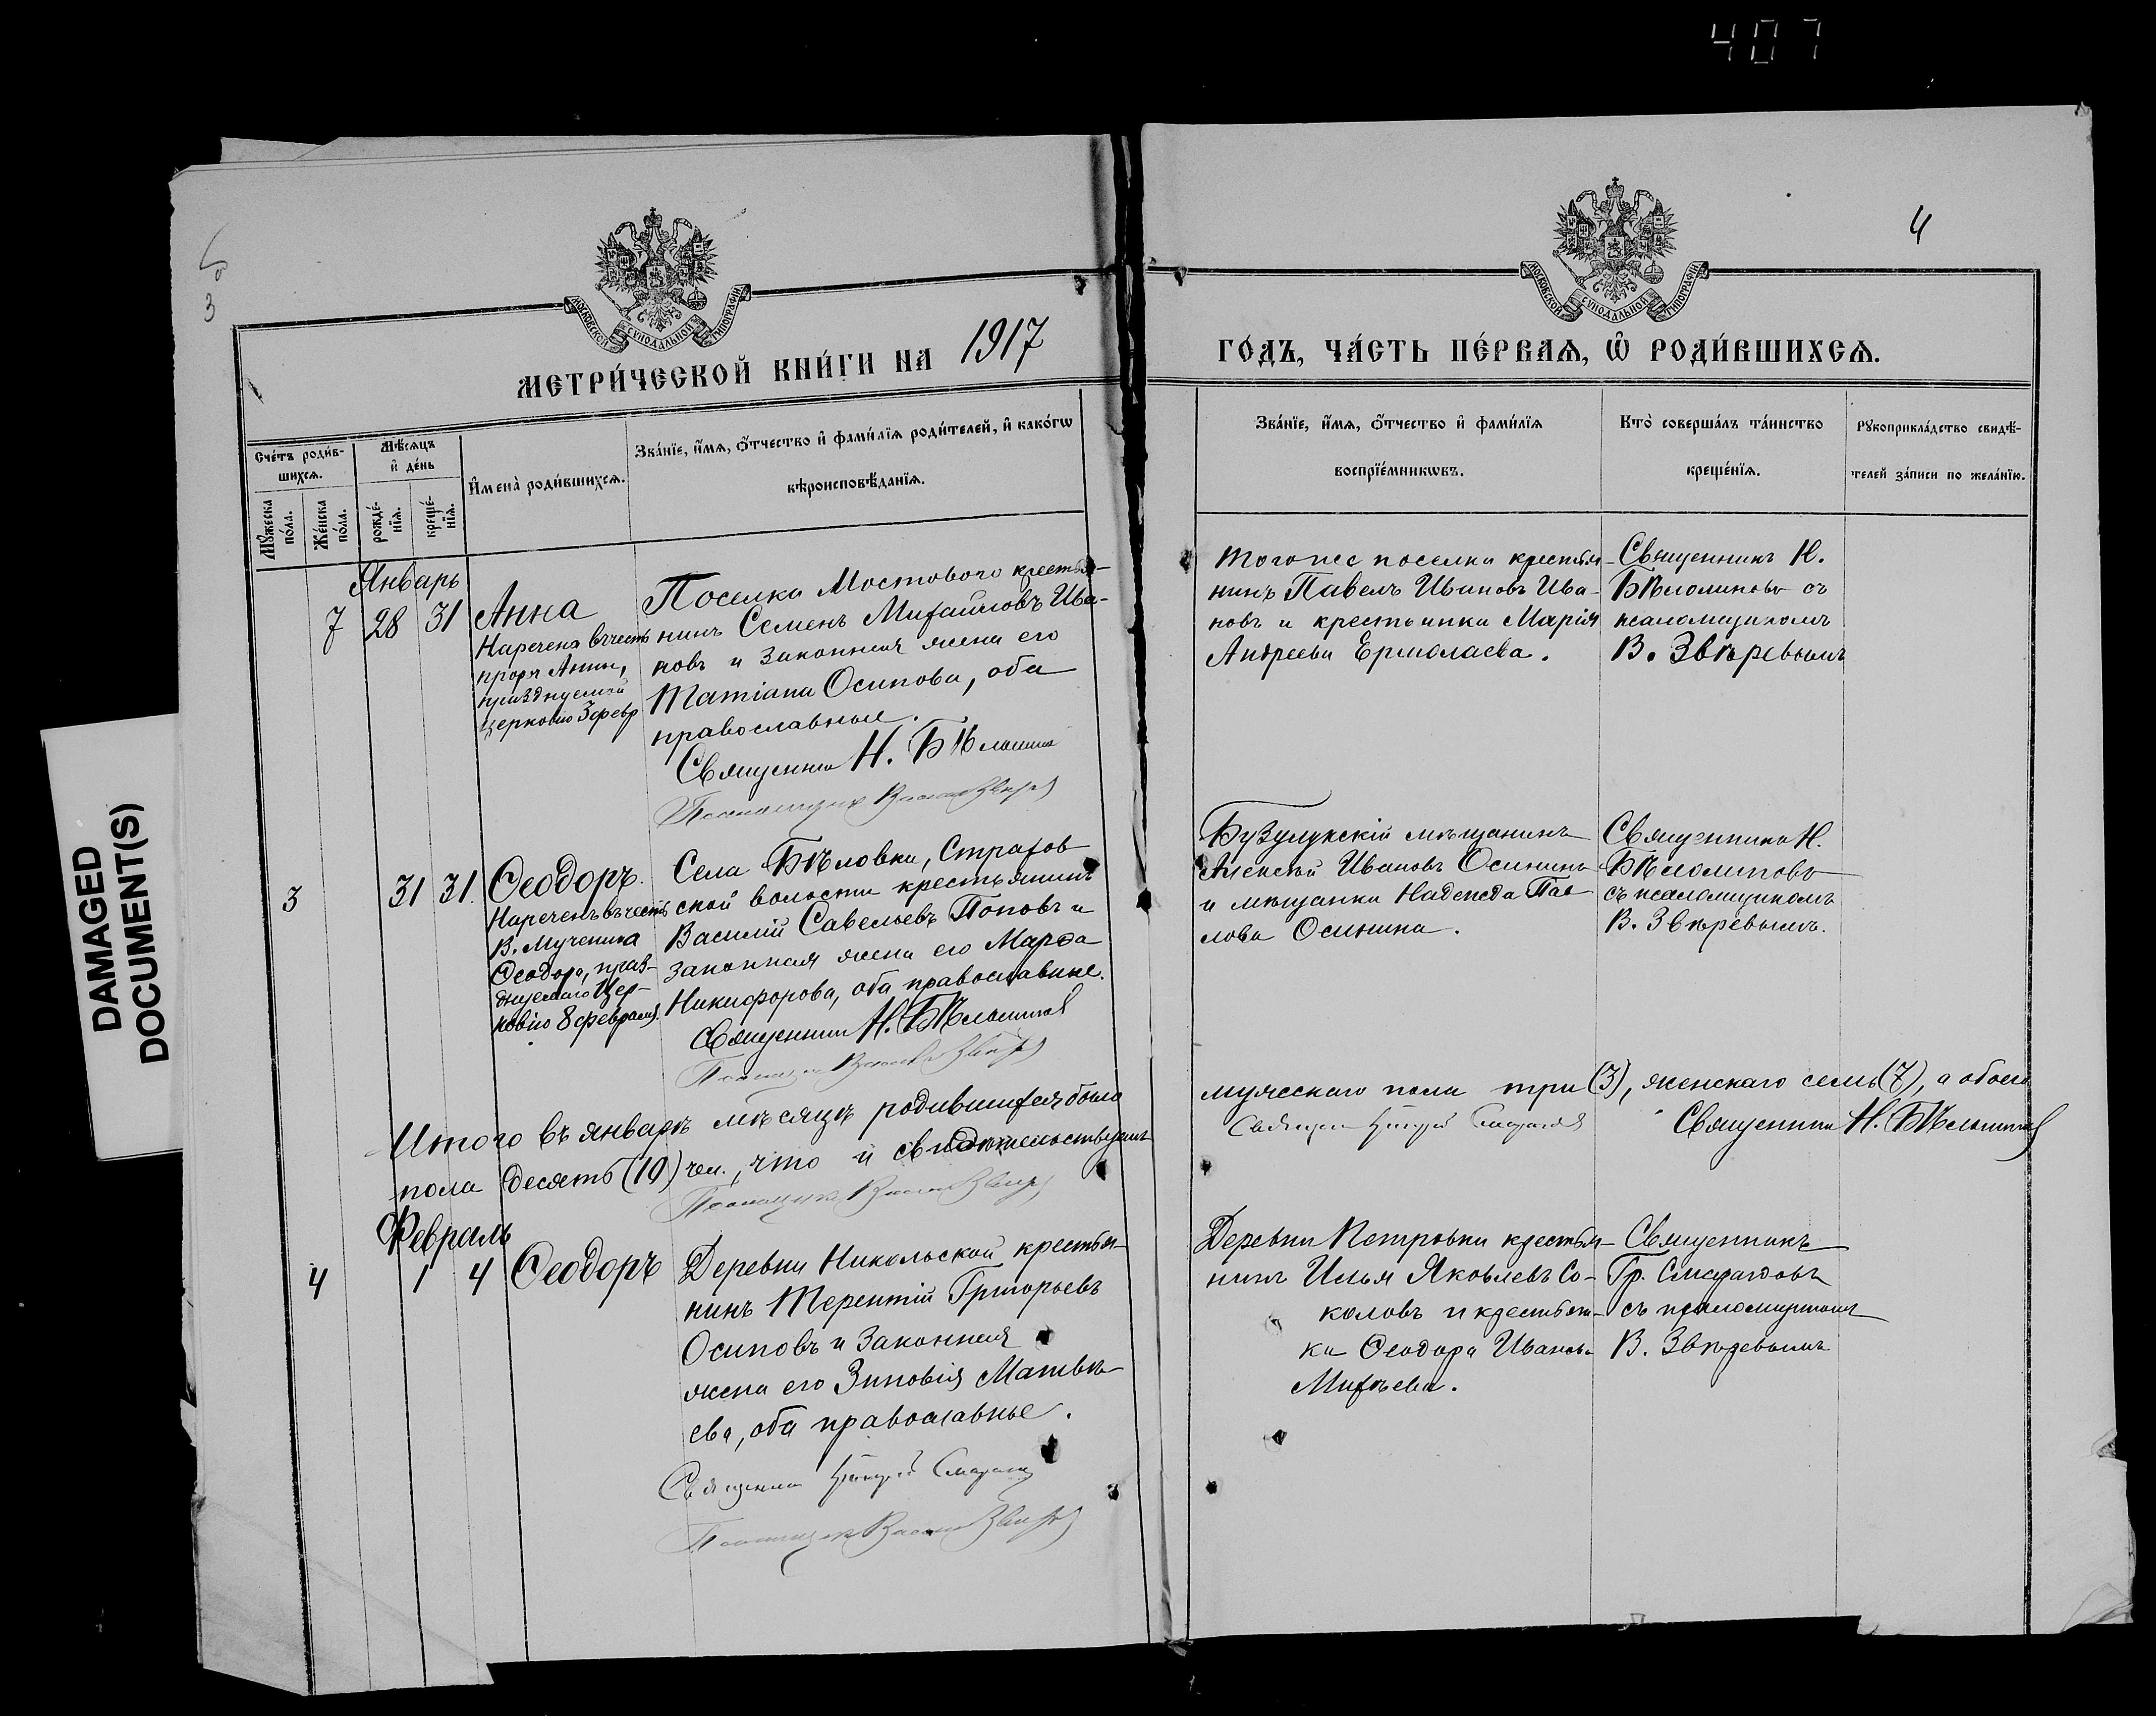 407
4
3
МОСКОВСКОЙ СѴНОДАЛЬНОЙ ТИПОГРАФІИ
МОСКОВСКОЙ СѴНОДАЛЬНОЙ ТИПОГРАФІИ
МЕТРИ́ЧЕСКОЙ КНИ́ГИ НА 1917
ГО́ДЪ, ЧА́СТЬ ПЕ́РВАѦ, Ѡ҆ РОДИ́ВШИХСѦ.
Сче́тъ роди́в-
шихсѧ.
Мꙋ́жеска по́ла.
Же́нска по́ла.
Мѣ́сѧцъ и҆ де́нь
рожде́-нїѧ.
креще́-нїѧ.
И҆мена̀ роди́вшихсѧ.
Зва́нїе, и҆́мѧ, ѻ҆́тчество и҆ фами́лїѧ роди́телей, и҆ како́гѡ
вѣроисповѣ́данїѧ.
Зва́нїе, и҆́мѧ, ѻ҆́тчество и҆ фами́лїѧ
воспрїе́мникѡвъ.
Кто̀ соверша́лъ та́инство
креще́нїѧ.
Рꙋкоприкла́дство свидѣ́-
телей за́писи по жела́нїю.
Январь
7 28 31
Анна
Наречена въ честь
прор. Анны,
празднуемой
церковію 3 февр
Поселка Мостового крестья-
нинъ Семенъ Михайловъ Ива-
новъ и законная жена его
Татіана Осипова, оба
православные.
Священник Н. Бѣло
Псаломщик
Тогоже поселка крестья-
нинъ Павелъ Ивановъ Ива-
новъ и крестьянка Марія
Андреева Ермолаева.
Священникъ Н.
съ
псаломщикомъ
В. Звѣревымъ
3 31 31
Ѳеодоръ.
Нареченъ въ честь
В. Мученика
Ѳеодора, праз-
днуемаго Цер-
ковію 8 февраля.
Села Бѣловки, Страхов
ской волости крестьянинъ
Василій Савельевъ Поповъ и
законная жена его Марѳа
Никифорова, оба православные.
Священник Н.
Псаломщик
Бузулукскій мѣщанинъ
Алексѣй Ивановъ Осининъ
и мѣщанка Надежда Пав
лова Осинина.
Священникъ Н.
съ псаломщикомъ
В. Звѣревымъ.
Итого въ январѣ мѣсяцѣ родившихся было
мужескаго пола три (3), женскаго семь (7), а обоего
пола десять (10) чел., что и свидѣтельствуемъ
Священник Григорій
Священник Н.
Псаломщик
Февраль
4 1 4
Ѳеодоръ
Деревни Никольской крестья-
нинъ Терентій Григорьевъ
Осиповъ и законная
жена его Зиновія Матвѣ-
ева, оба православные.
Священник Григорій
Псаломщик
Деревни Петровки крестья-
нинъ Илья Яковлевъ Со-
коловъ и крестьян-
ка Ѳеодора Иванова
Михѣева.
Священникъ
Гр.
съ псаломщикомъ
В. Звѣревымъ
DAMAGED
DOCUMENT(S)